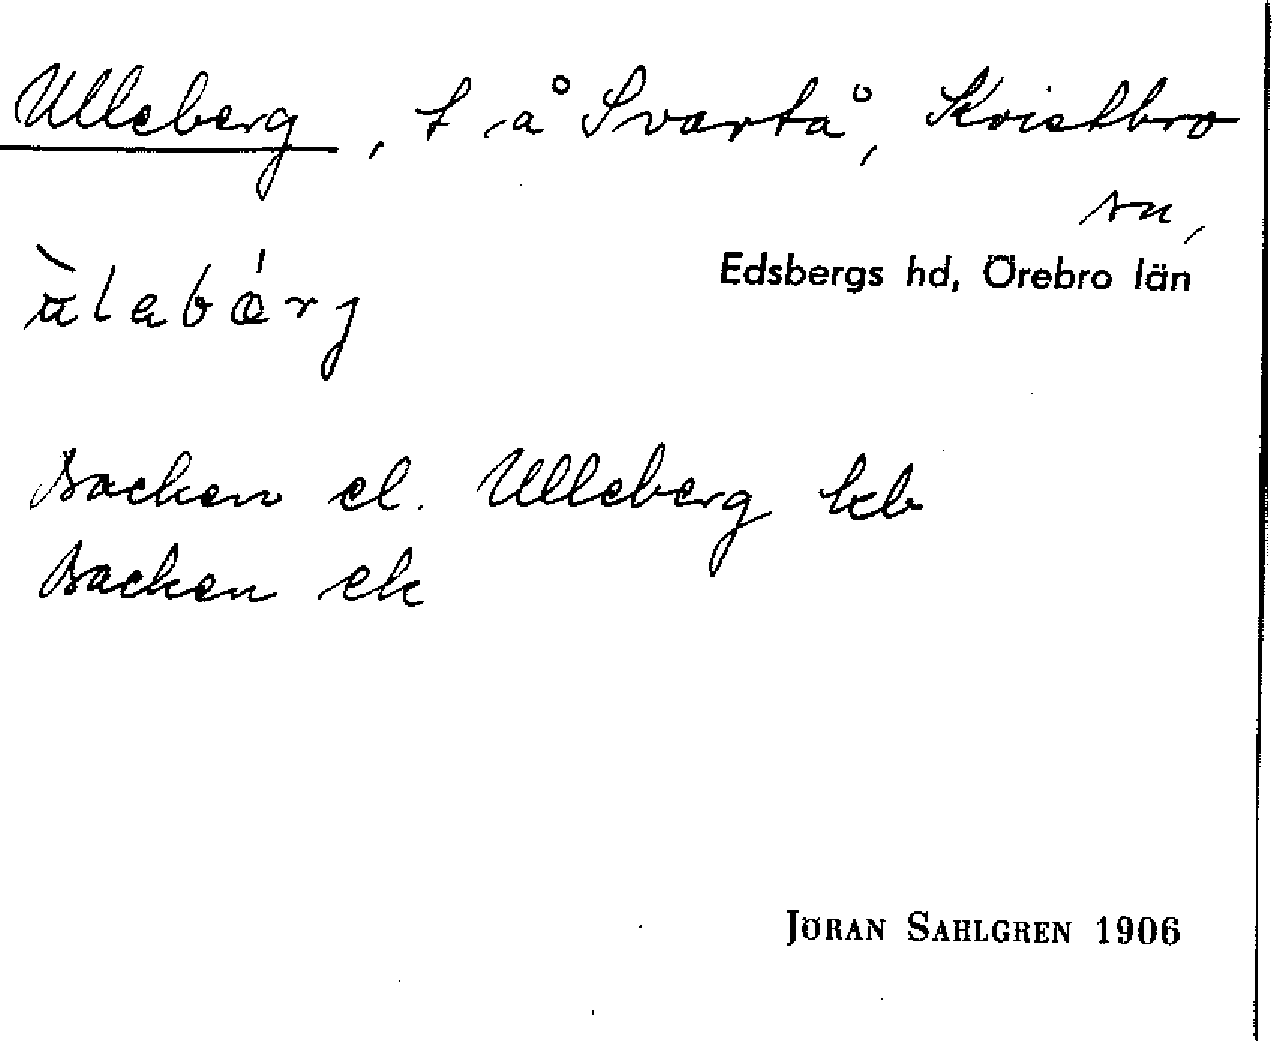 Ulleberg, t å Svartå, Kvistbro
sn,
Edsbergs hd, Örebro län
ùlabǽrj
Backen el. Ulleberg kb
Backen ek
JÖRAN SAHLGREN 1906